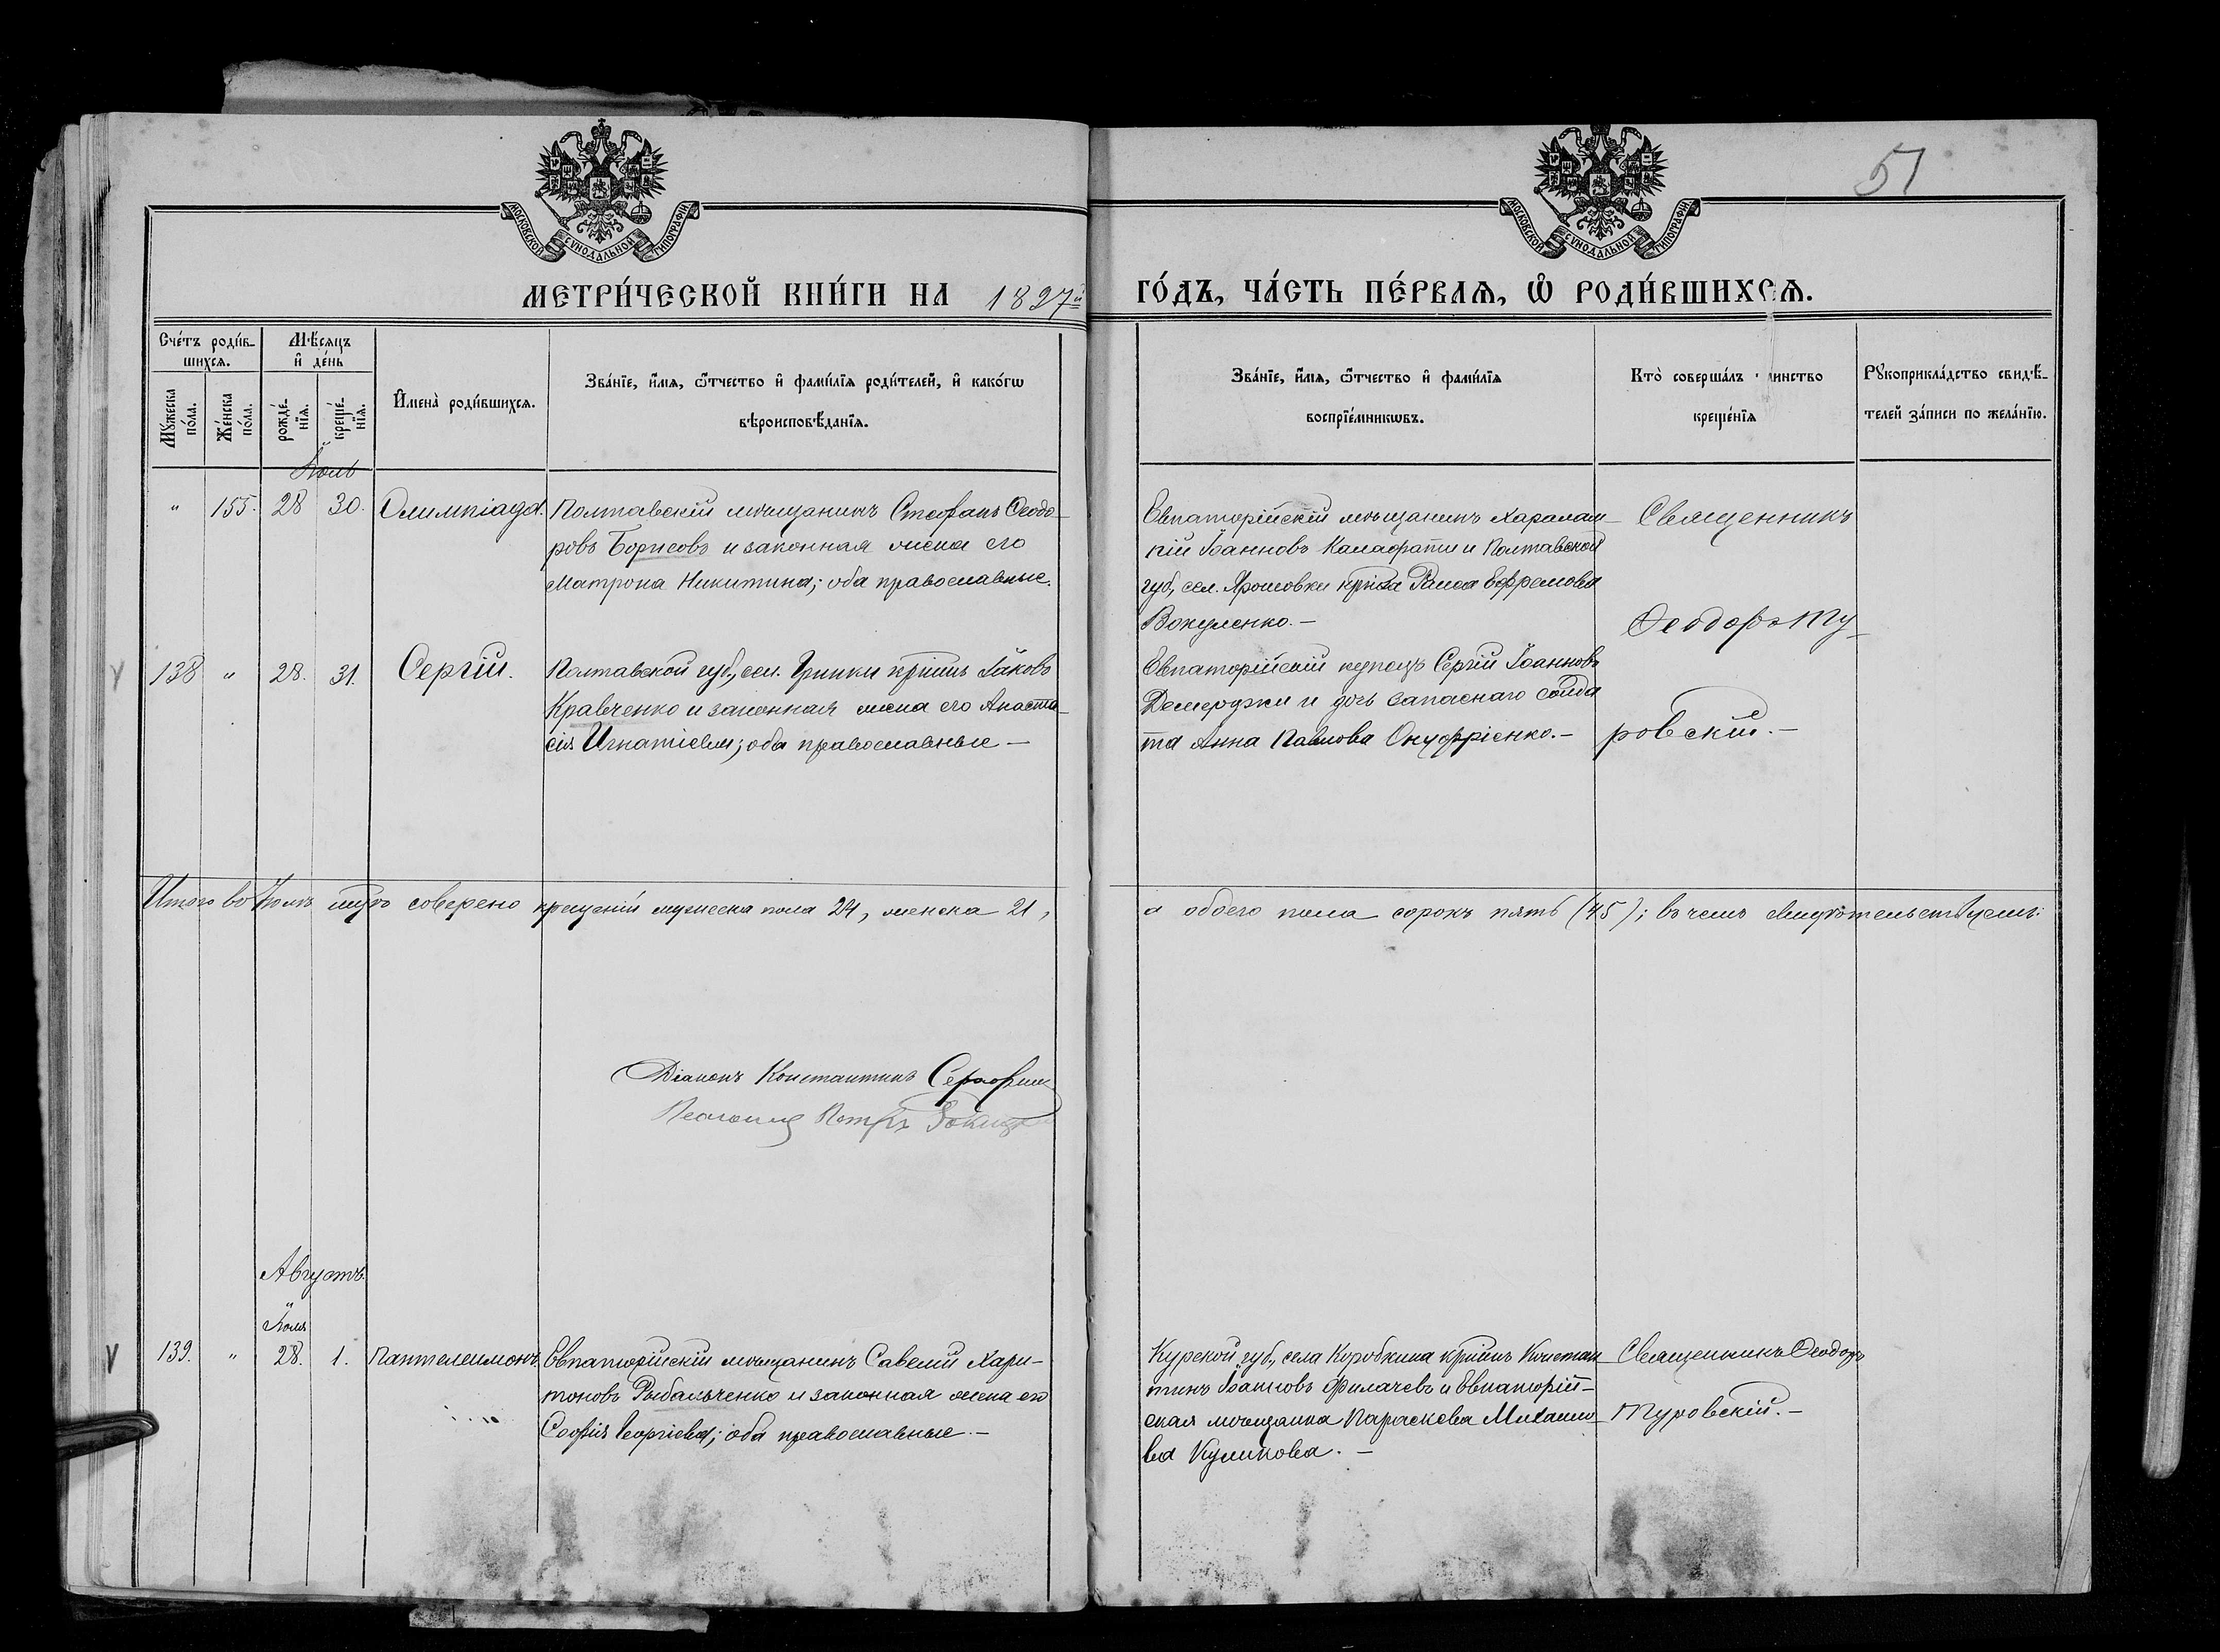 51
МОСКОВСКОЙ СѴНОДАЛЬНОЙ ТИПОГРАФІИ
МОСКОВСКОЙ СѴНОДАЛЬНОЙ ТИПОГРАФІИ
МЕТРИ́ЧЕСКОЙ КНИ́ГИ НА 1897й ГО́ДЪ, ЧА́СТЬ ПЕ́РВАѦ, Ѽ РОДИ́ВШИХСѦ.
Сче́тъ роди́в-
шихсѧ.
Мѣ́сѧцъ
и҆ де́нь
Мꙋ́жеска по́ла.
Же́нска по́ла.
рожде́-нїѧ.
креще́-нїѧ.
И҆мена̀ роди́вшихсѧ.
Зва́нїе, и҆́мѧ, ѻ҆́тчество и҆ фами́лїѧ роди́телей, и҆ како́гѡ
вѣроисповѣ́данїѧ.
Зва́нїе, и҆́мѧ, ѻ҆́тчество и҆ фами́лїѧ
воспрїе́мникѡвъ.
Кто̀ соверша́лъ инство
креще́нїѧ
Рꙋкоприкла́дство свидѣ́-
телей за́писи по жела́нїю.
Іюль
" 155. 28 30. Олимпіада. Полтавскій мѣщанинъ Стефанъ Ѳеодо-
ровъ Борисовъ и законная жена его
Матрона Никитина; оба православные.
Евпаторійскій мѣщанинъ Харалам-
пій Іоанновъ Калафати и Полтавской
губ., сел. Ярошовки Раиса Ефремова
Вакуленко.—
Священникъ
Ѳеодоръ Ту-
ровскій.—
138 " 28. 31. Сергій. Полтавской губ., сел. Гриньки Іаковъ
Кравченко и законная жена его Анаста-
сія Игнатіева; оба православные—
Евпаторійскій купецъ Сергій Іоанновъ
Демерджи и дочь запаснаго солда
та Анна Павлова Онуфріенко.—
Итого въ Іюлѣ мцѣ соверено крещеній мужеска пола 24, женска 21,
а обоего пола сорокъ пять (45); въ чемъ свидѣтельствуемъ:
Діаконъ Константинъ
Псаломщ Петръ
Августъ.
Іюля
139. " 28. 1. Пантелеимонъ. Евпаторійскій мѣщанинъ Савелій Хари-
тоновъ Рыбальченко и законная жена его
Софія Георгіева; оба православные.—
Курской губ., села Коробкина Констан-
тинъ Іоанновъ Филачевъ и Евпаторій-
ская мѣщанка Параскева Михаило-
ва Куликова.—
Священникъ Ѳеодоръ
Туровскій.—